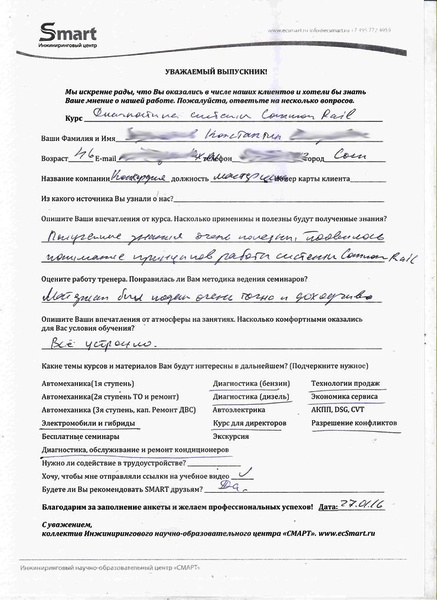 Smart
Инжиниринговый центр
www.ecsmart.ru info@ecsmart.ru +7 495
УВАЖАЕМЫЙ ВЫПУСКНИК!
Мы искренне рады, что Вы оказались в числе наших клиентов и хотели бы знать
Ваше мнение о нашей работе. Пожалуйста, ответьте на несколько вопросов.
Курс Диагностика системы Common Rail
Ваши Фамилия и Имя Константин
Возраст 46 E-mail Телефон Город Сочи
Название компании должность мастер Номер карты клиента
Из какого источника Вы узнали о нас?
Опишите Ваши впечатления от курса. Насколько применимы и полезны будут полученные знания?
Полученные знания очень полезны, появилось
понимание принципов работы системы Common Rail
Оцените работу тренера. Понравилась ли Вам методика ведения семинаров?
Материал был подан очень точно и доходчиво
Опишите Ваши впечатления от атмосферы на занятиях. Насколько комфортными оказались
для Вас условия обучения?
Всё устроило.
Какие темы курсов и материалов Вам будут интересны в дальнейшем? (Подчеркните нужное)
Автомеханика(1я ступень) Диагностика (бензин) Технологии продаж
Автомеханика(2я ступень ТО и ремонт) Диагностика (дизель) Экономика сервиса
Автомеханика (3я ступень, кап. Ремонт ДВС) Автоэлектрика АКПП, DSG, CVT
Электромобили и гибриды Курс для директоров Разрешение конфликтов
Бесплатные семинары Экскурсия
Диагностика, обслуживание и ремонт кондиционеров
Нужно ли содействие в трудоустройстве?
Хочу, чтобы мне отправляли ссылки на учебное видео
Будете ли Вы рекомендовать SMART друзьям? Да.
Благодарим за заполнение анкеты и желаем профессиональных успехов! Дата: 27.01.16
С уважением,
коллектив Инжинирингового научно-образовательного центра «СМАРТ». www.ecSmart.ru
Инжиниринговый научно-образовательный центр «СМАРТ»